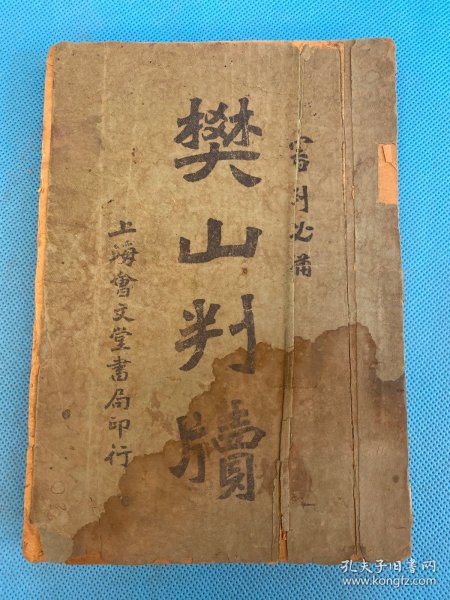 審判必備
樊山判牘
上海會文堂書局印行
孔夫子旧书网
www.kongfz.com